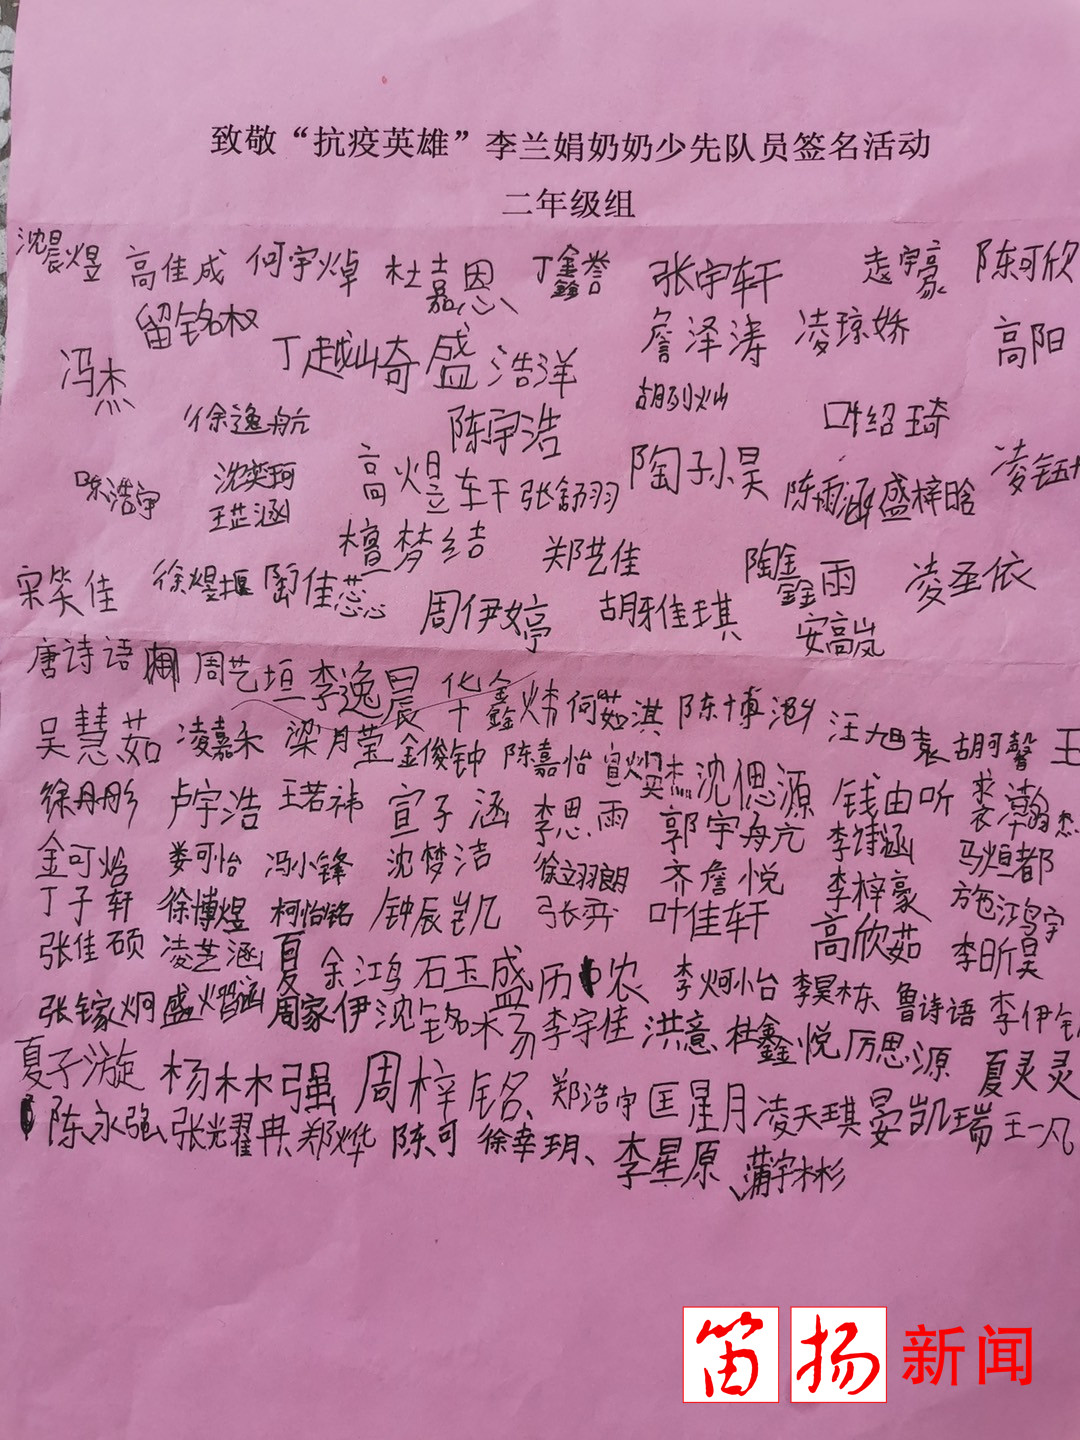 致敬“抗疫英雄”李兰娟奶奶少先队员签名活动
二年级组
沈晨煜 高佳成 何宇焯 杜嘉恩 丁鑫誉 张宇轩 袁宇豪 陈可欣
留铭权 丁越山奇 盛浩洋 詹泽涛 凌琼娇 高阳
冯杰 徐逸航 陈宇浩 胡列灿 叶绍琦
陈浩宇 沈奕珂 高煜轩 张舒羽 陶子小昊 陈雨涵 盛梓晗 凌钰
王芷涵 檀梦结 郑艺佳 陶鑫雨 凌圣依
宋笑佳 徐煜堰 陶佳蕊 周伊婷 胡雅琪 安高岚
唐诗语 周艺垣 李逸晨 华鑫炜 何茹淇 陈博 汪旭袁 胡珂馨 王
吴慧茹 凌嘉禾 梁月莹 金俊钟 陈嘉怡 宣杰 沈偲源 钱由听 裘瀚
徐丹彤 卢宇浩 王若祎 宣子涵 李思雨 郭宇航 李诗涵 马烜都
金可焓 娄可怡 冯小锋 沈梦洁 徐翊朗 齐詹悦 李梓豪 施鸿宇
丁子轩 徐博煜 柯怡铭 钟辰凯 张弈 叶佳轩 高欣茹 李昕昊
张佳硕 凌芝涵 夏余鸿 石玉盛 历农 李炣怡 李昊栋 鲁诗语 李伊
张镓炯 盛熠涵 周家伊 沈铭杨 李宇佳 洪意 杜鑫悦 厉思源 夏灵灵
夏子漩 杨林强 周梓铭、郑浩宇 匡星月 凌天琪 晏凯瑞 王一凡
陈永强、张光耀冉、郑烨 陈可 徐幸玥、李星原、蒲宇彬
笛扬新闻